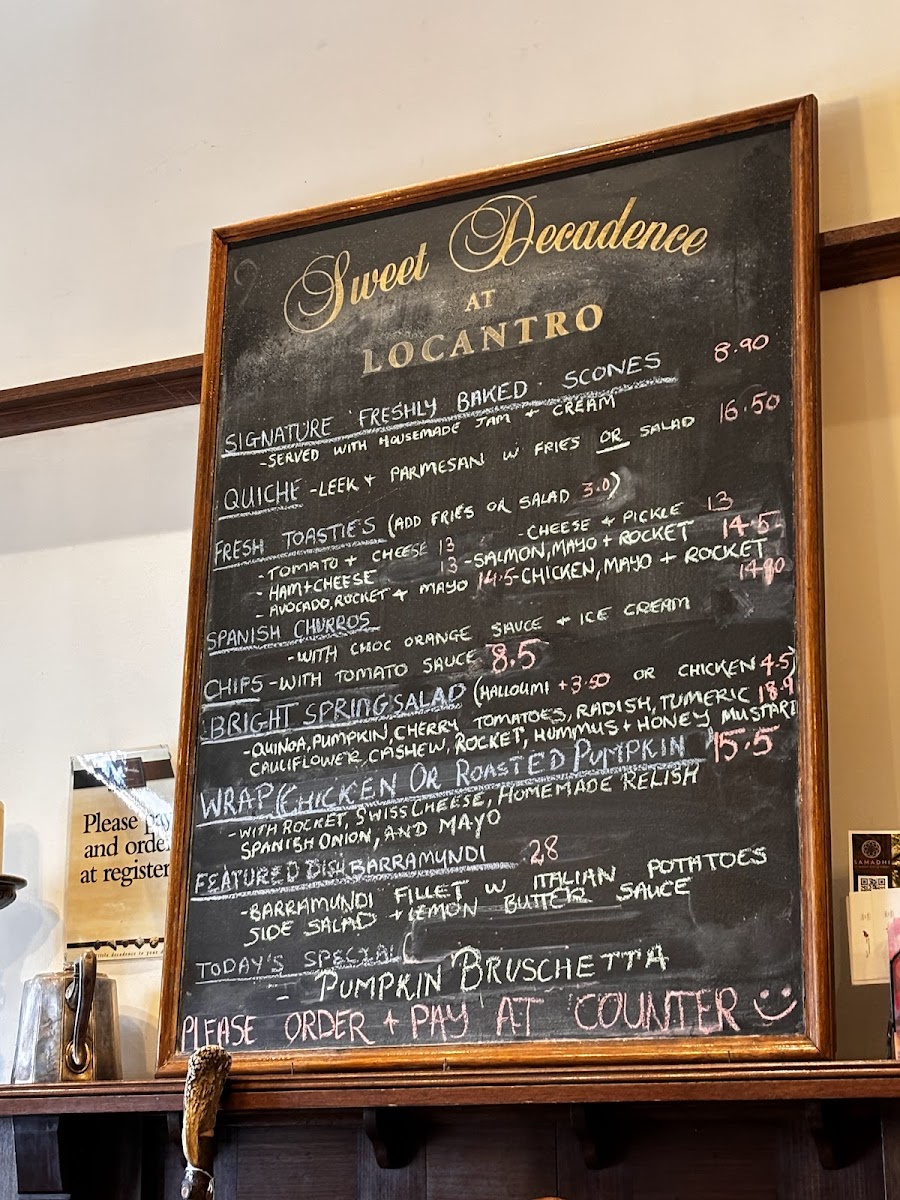 Sweet Decadence
AT
LOCANTRO
SIGNATURE FRESHLY BAKED SCONES 8.90
-SERVED WITH HOUSEMADE JAM + CREAM
QUICHE -LEEK + PARMESAN W FRIES OR SALAD 16.50
FRESH TOASTIES (ADD FRIES OR SALAD 3.0)
-TOMATO + CHEESE 13 -CHEESE + PICKLE 13
-HAM+CHEESE 13 -SALMON, MAYO + ROCKET 14.5
-AVOCADO, ROCKET + MAYO 14.5 -CHICKEN, MAYO + ROCKET
SPANISH CHURROS
-WITH CHOC ORANGE SAUCE + ICE CREAM
CHIPS -WITH TOMATO SAUCE 8.5
BRIGHT SPRING SALAD (HALLOUMI +3.50 OR CHICKEN 4.5)
-QUINOA, PUMPKIN, CHERRY TOMATOES, RADISH, TUMERIC 18.9
CAULIFLOWER, CASHEW, ROCKET, HUMMUS + HONEY MUSTARD
WRAP (CHICKEN OR ROASTED PUMPKIN 15.5
-WITH ROCKET, SWISS CHEESE, HOMEMADE RELISH
SPANISH ONION, AND MAYO
FEATURED DISH BARRAMUNDI 28
-BARRAMUNDI FILLET W ITALIAN POTATOES
SIDE SALAD + LEMON BUTTER SAUCE
TODAY'S SPECIAL
- PUMPKIN BRUSCHETTA
PLEASE ORDER + PAY AT COUNTER
Please pay
and order
at register
SAMADHI